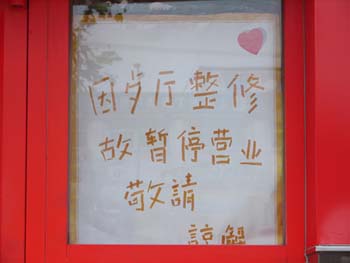 因歺厅整修
故暂停营业
敬請
諒解